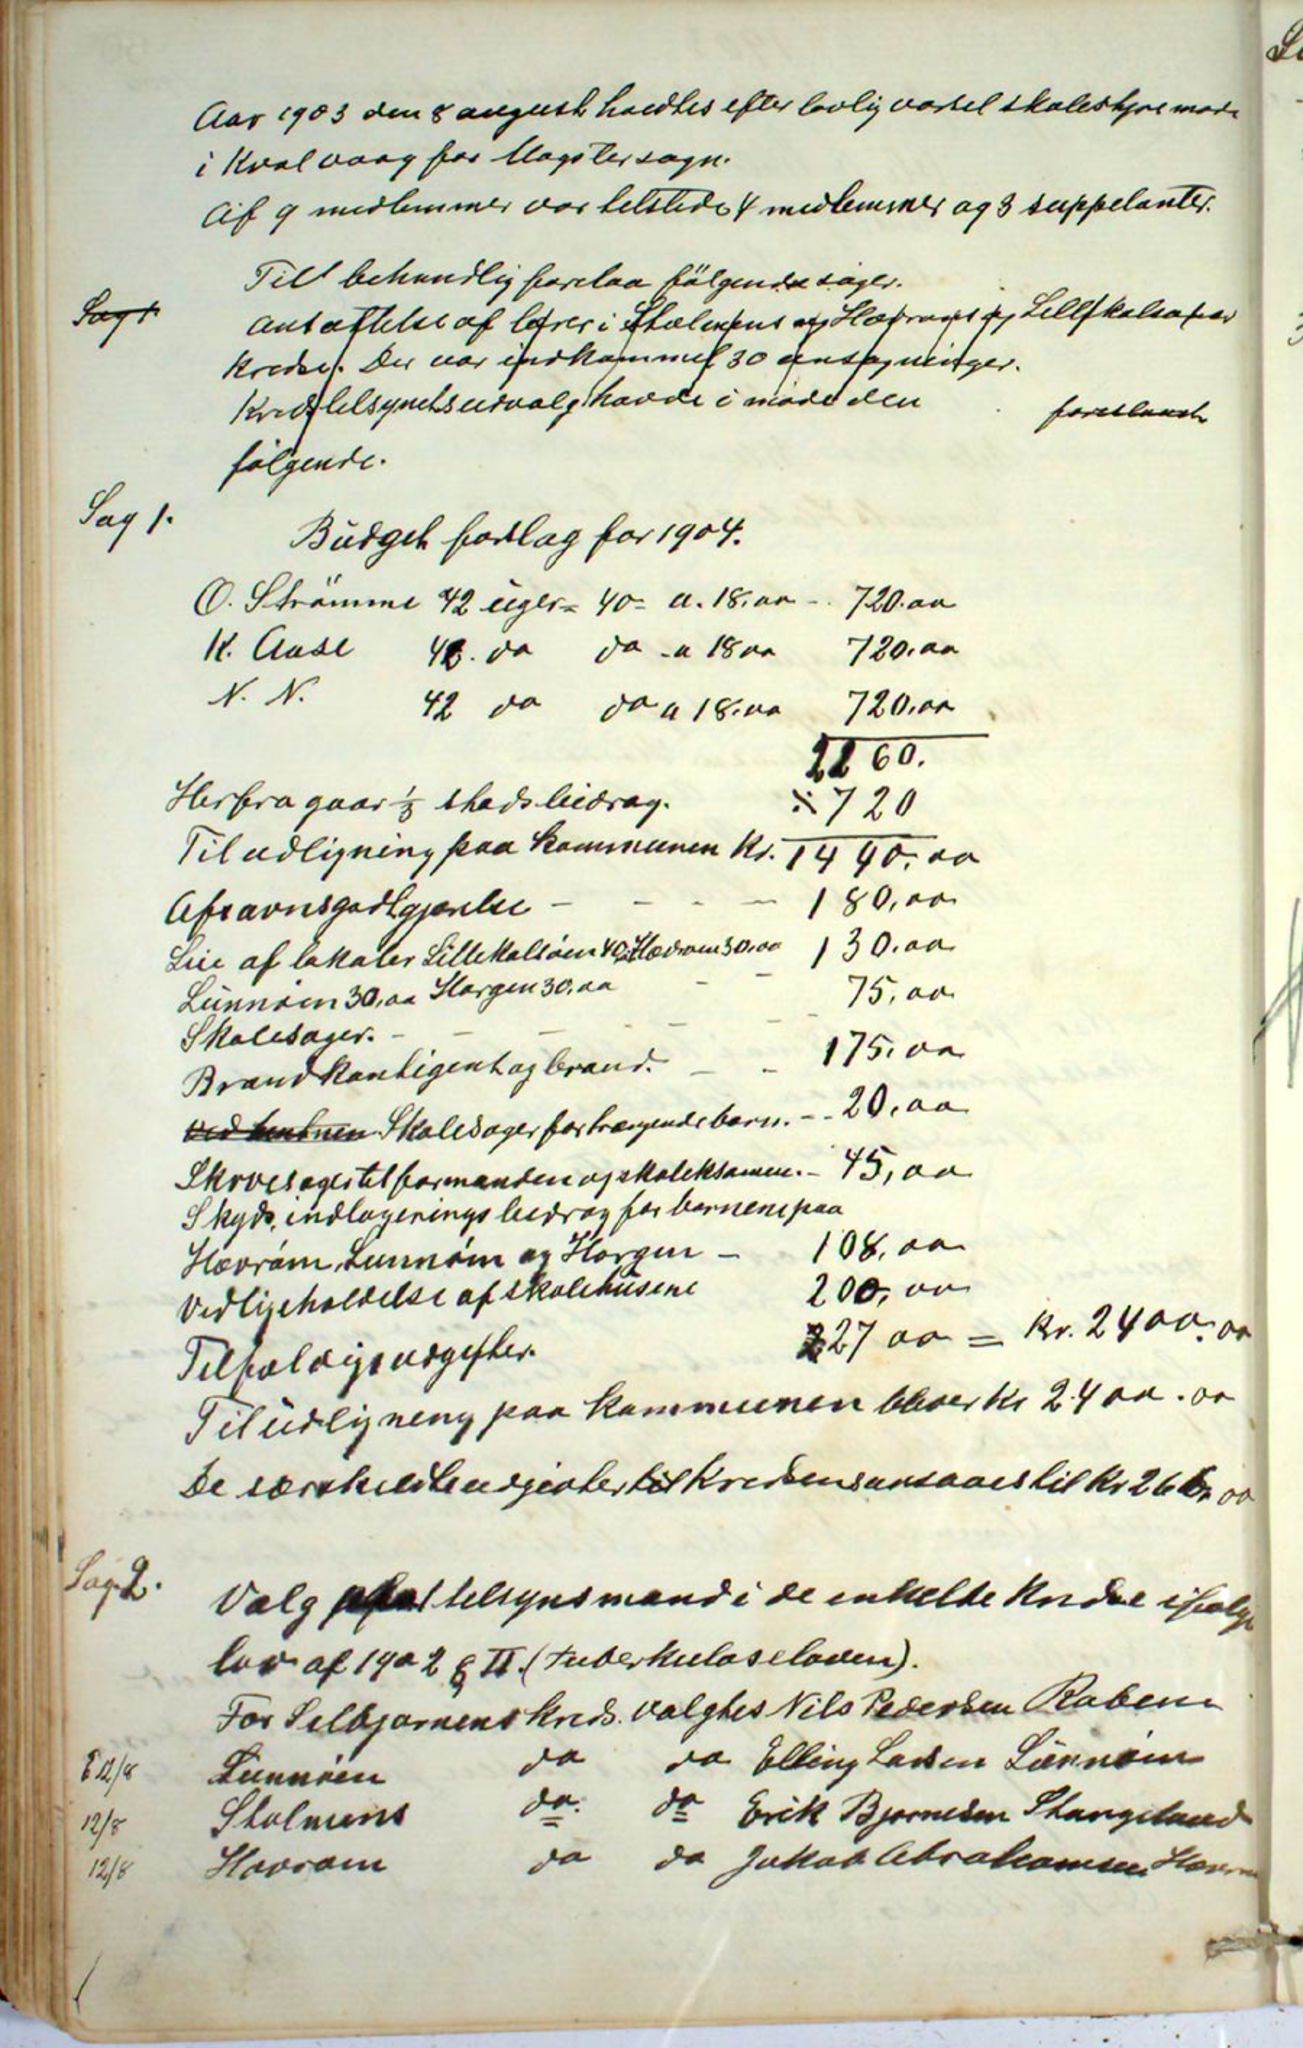 Aar 1903 den 8 august holdtes efter lovlig varsel skolestyremøde
i Kvalvaag for Møgster sogn.
Af 9 medlemmer var tilstede 4 medlemmer og 3 suppelanter.
Till behandlig forelaa følgende sager.
Sag 1
Ansættelse af lærer i Stolmens og Hævrøens og Lillekalsøens
kredse. Der var indkommet 30 ansøgninger.
Kredstilsynetsudvalg havde i møde den foreslaaet
følgende.
Sag 1.
Budget forslag for 1904.
O. Strømme 42 uger = 40 = a. 18.00 - 720.00
K. Aase 42. do do - a 18 00 720.00
N. N. 42 do do a 18.00 720.00
2160.
Herfra gaar 1/3 stadsbidrag. ÷ 720
Til udligning paa kommunen Kr. 1440.00
Afsavnsgodtgjørelse - - - - 180,00
Leie af lokaler Lillekalsøen 40,00 Hævrøen 30,00 130.00
Lunnøen 30,00 Horgen 30,00 - - 75,00
Skolesager. - - - - - -
Brandkontigent og brand. - - 175.00
ved Skolesager for trængende børn. - - 20,00
Skrivesager til formanden og skoleksamen. - 45,00
Skyds, indlogerings bidrag for børnene paa
Hævrøen, Lunnøen og Horgen - 108,00
Vedligeholdelse af skolehusene 200,00
Tilfældige udgifter. 227 00 = Kr. 2400.00
Til udligning paa kommunen bliver Kr 2400.00
De særskildte udgivter til Kredsen ansaaes til Kr 266,00
Sag 2.
Valg tilsynsmand i de enkelte Kredse ifølge
lov af 1902 § II. (tuberkuloseloven).
For Selbjørnens kreds valgtes Nils Pedersen Raben
E 12/8 Lunnøen do do Elling Larsen Lunnøen
12/8 Stolmens do. do Erik Bjørnesen Stangeland
12/8 Hovrøen do do Jakob Abrahamsen Hævrøen